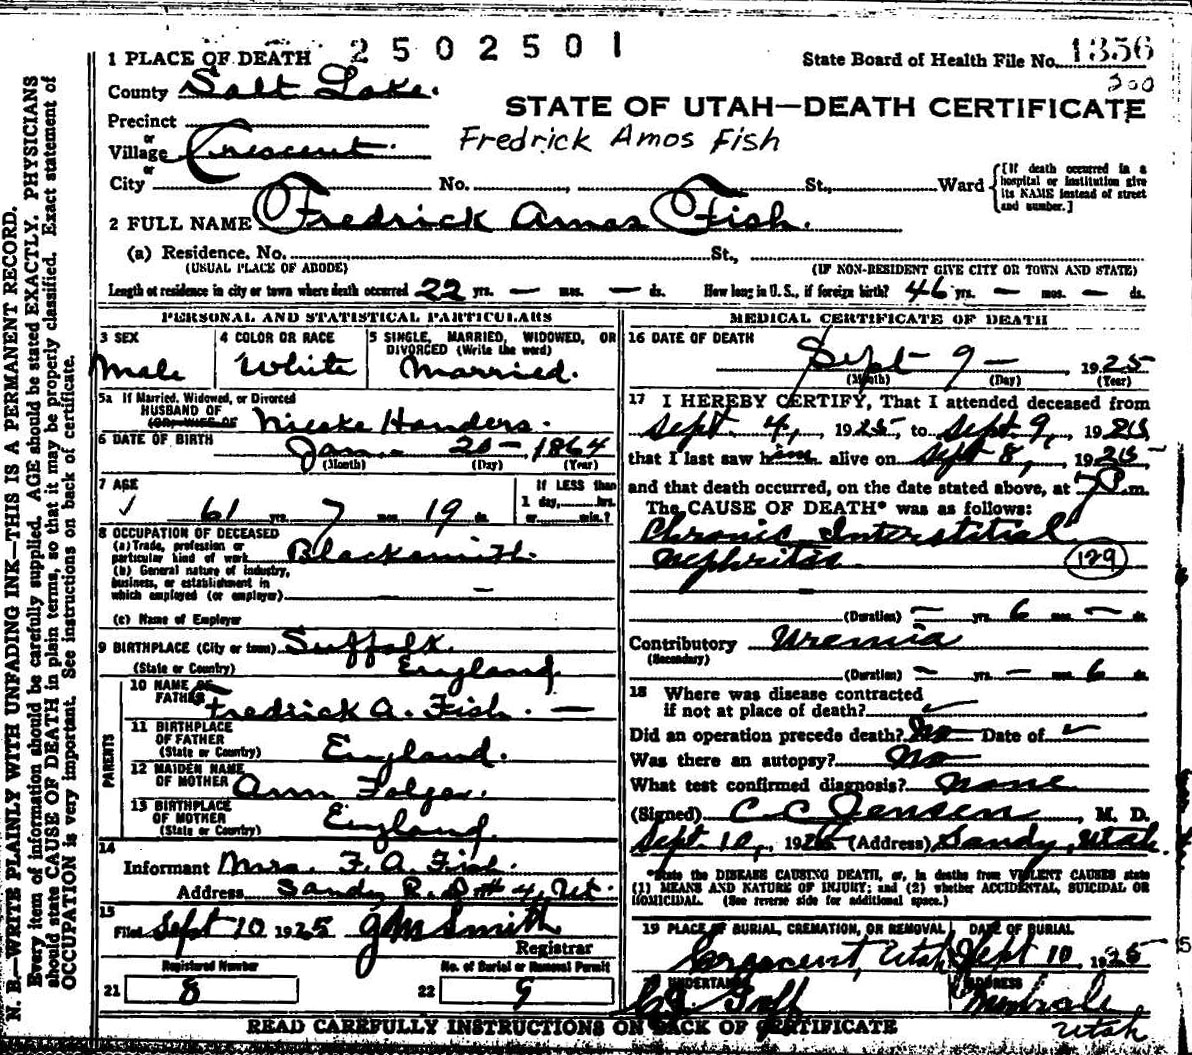 2502501
1 PLACE OF DEATH
State Board of Health File No. 1356
200
County Salt Lake.
STATE OF UTAH—DEATH CERTIFICATE
Precinct
or
Village Crescent.
Fredrick Amos Fish
or
City No. , St., Ward
[If death occurred in a hospital or institution give its NAME instead of street and number.]
2 FULL NAME Fredrick Amos Fish.
(a) Residence. No. St.,
(USUAL PLACE OF ABODE) (IF NON-RESIDENT GIVE CITY OR TOWN AND STATE)
Length of residence in city or town where death occurred 22 yrs. — mos. — ds. How long in U. S., if foreign birth? 46 yrs. — mos. — ds.
PERSONAL AND STATISTICAL PARTICULARS
3 SEX
Male
4 COLOR OR RACE
White
5 SINGLE, MARRIED, WIDOWED, OR DIVORCED (Write the word)
Married.
5a If Married, Widowed, or Divorced
HUSBAND OF
(OR) WIFE OF
Handers.
6 DATE OF BIRTH Jan. 20 — 1864
(Month) (Day) (Year)
7 AGE
61 yrs. 7 mos. 19 ds.
If LESS than
1 day, hrs.
or min.?
8 OCCUPATION OF DECEASED
(a) Trade, profession or
particular kind of work Blacksmith.
(b) General nature of industry,
business, or establishment in
which employed (or employer) —
(c) Name of Employer
9 BIRTHPLACE (City or town) Suffolk
(State or Country) England
PARENTS
10 NAME OF
FATHER Fredrick A. Fish. —
11 BIRTHPLACE
OF FATHER
(State or Country) England.
12 MAIDEN NAME
OF MOTHER Ann Folger.
13 BIRTHPLACE
OF MOTHER
(State or Country) England.
14
Informant Mrs. F. A. Fish.
Address Sandy R. D. # 4, Ut.
15
Filed Sept 10 1925 J M Smith
Registrar
Registered Number
21 8
No. of Burial or Removal Permit
22 9
MEDICAL CERTIFICATE OF DEATH
16 DATE OF DEATH
Sept 9 — 1925
(Month) (Day) (Year)
17 I HEREBY CERTIFY, That I attended deceased from
Sept. 4, 1925, to Sept. 9, 1925
that I last saw him alive on Sept 8, 1925
and that death occurred, on the date stated above, at 7 P. m.
The CAUSE OF DEATH* was as follows:
Chronic Interstitial
Nephritis. 129
(Duration) — yrs. 6 mos. — ds.
Contributory Uremia
(Secondary)
(Duration) — yrs. — mos. 6 ds.
18 Where was disease contracted
if not at place of death? ✓
Did an operation precede death? No Date of ✓
Was there an autopsy? No
What test confirmed diagnosis? none
(Signed) C. C. Jensen, M. D.
Sept. 10, 1925 (Address) Sandy, Utah.
*State the DISEASE CAUSING DEATH, or, in deaths from VIOLENT CAUSES state
(1) MEANS AND NATURE OF INJURY; and (2) whether ACCIDENTAL, SUICIDAL OR
HOMICIDAL. (See reverse side for additional space.)
19 PLACE OF BURIAL, CREMATION, OR REMOVAL
Crescent, Utah
DATE OF BURIAL
Sept 10 1925
UNDERTAKER
Goff
ADDRESS
Midvale
Utah
READ CAREFULLY INSTRUCTIONS ON BACK OF CERTIFICATE
N. B.—WRITE PLAINLY WITH UNFADING INK—THIS IS A PERMANENT RECORD.
Every item of information should be carefully supplied. AGE should be stated EXACTLY. PHYSICIANS
should state CAUSE OF DEATH in plain terms, so that it may be properly classified. Exact statement of
OCCUPATION is very important. See instructions on back of certificate.